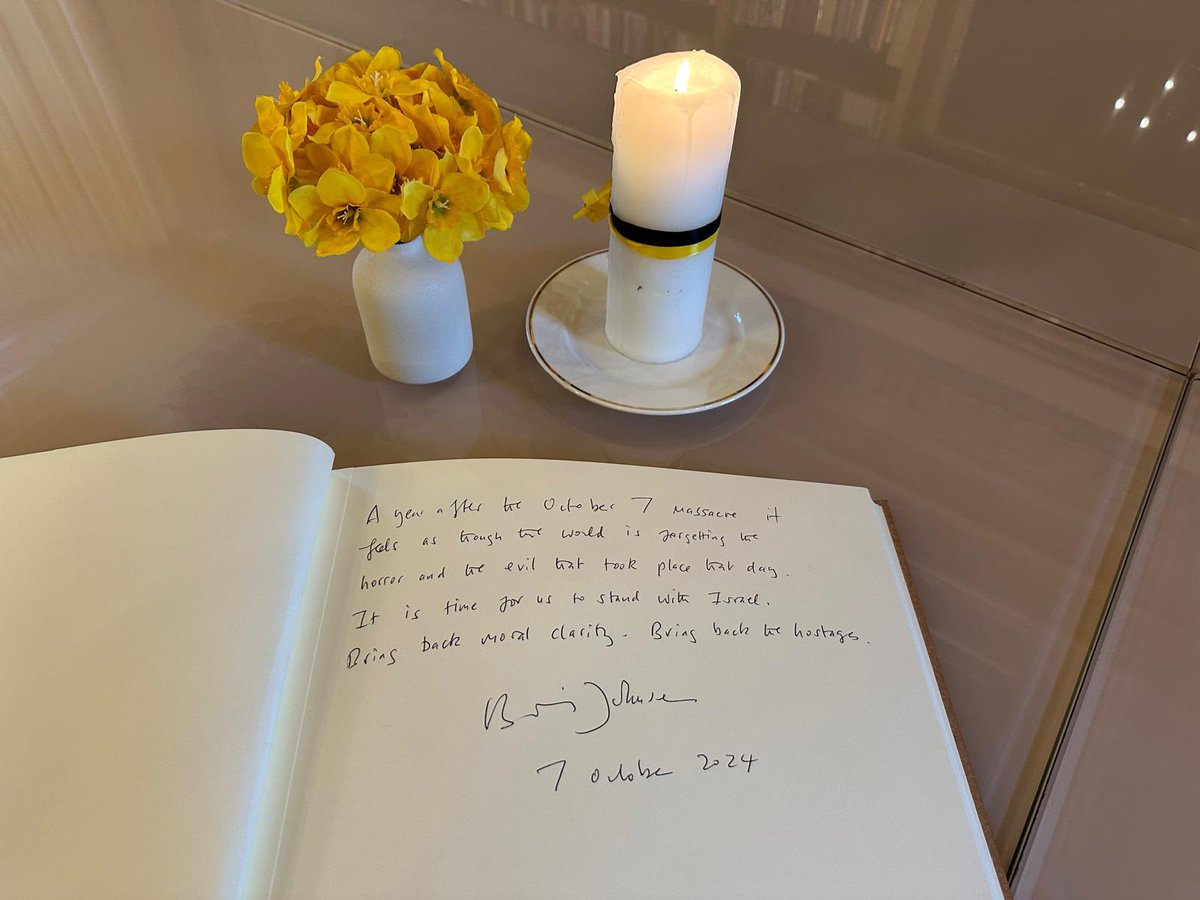 A year after the October 7 massacre it
feels as though the world is forgetting the
horror and the evil that took place that day.
It is time for us to stand with Israel.
Bring back moral clarity. Bring back the hostages.
Boris Johnson
7 October 2024